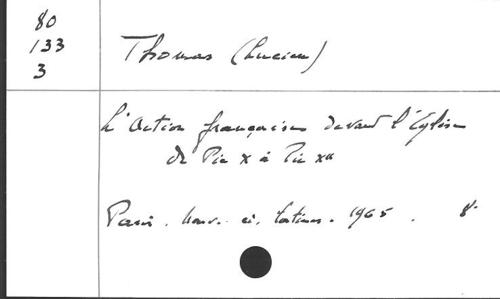 80
133
3
Thomas (Lucien)
L'Action française devant l'Église
de Pie X à Pie XII
Paris. Nouv. éd. latines. 1965. 8°